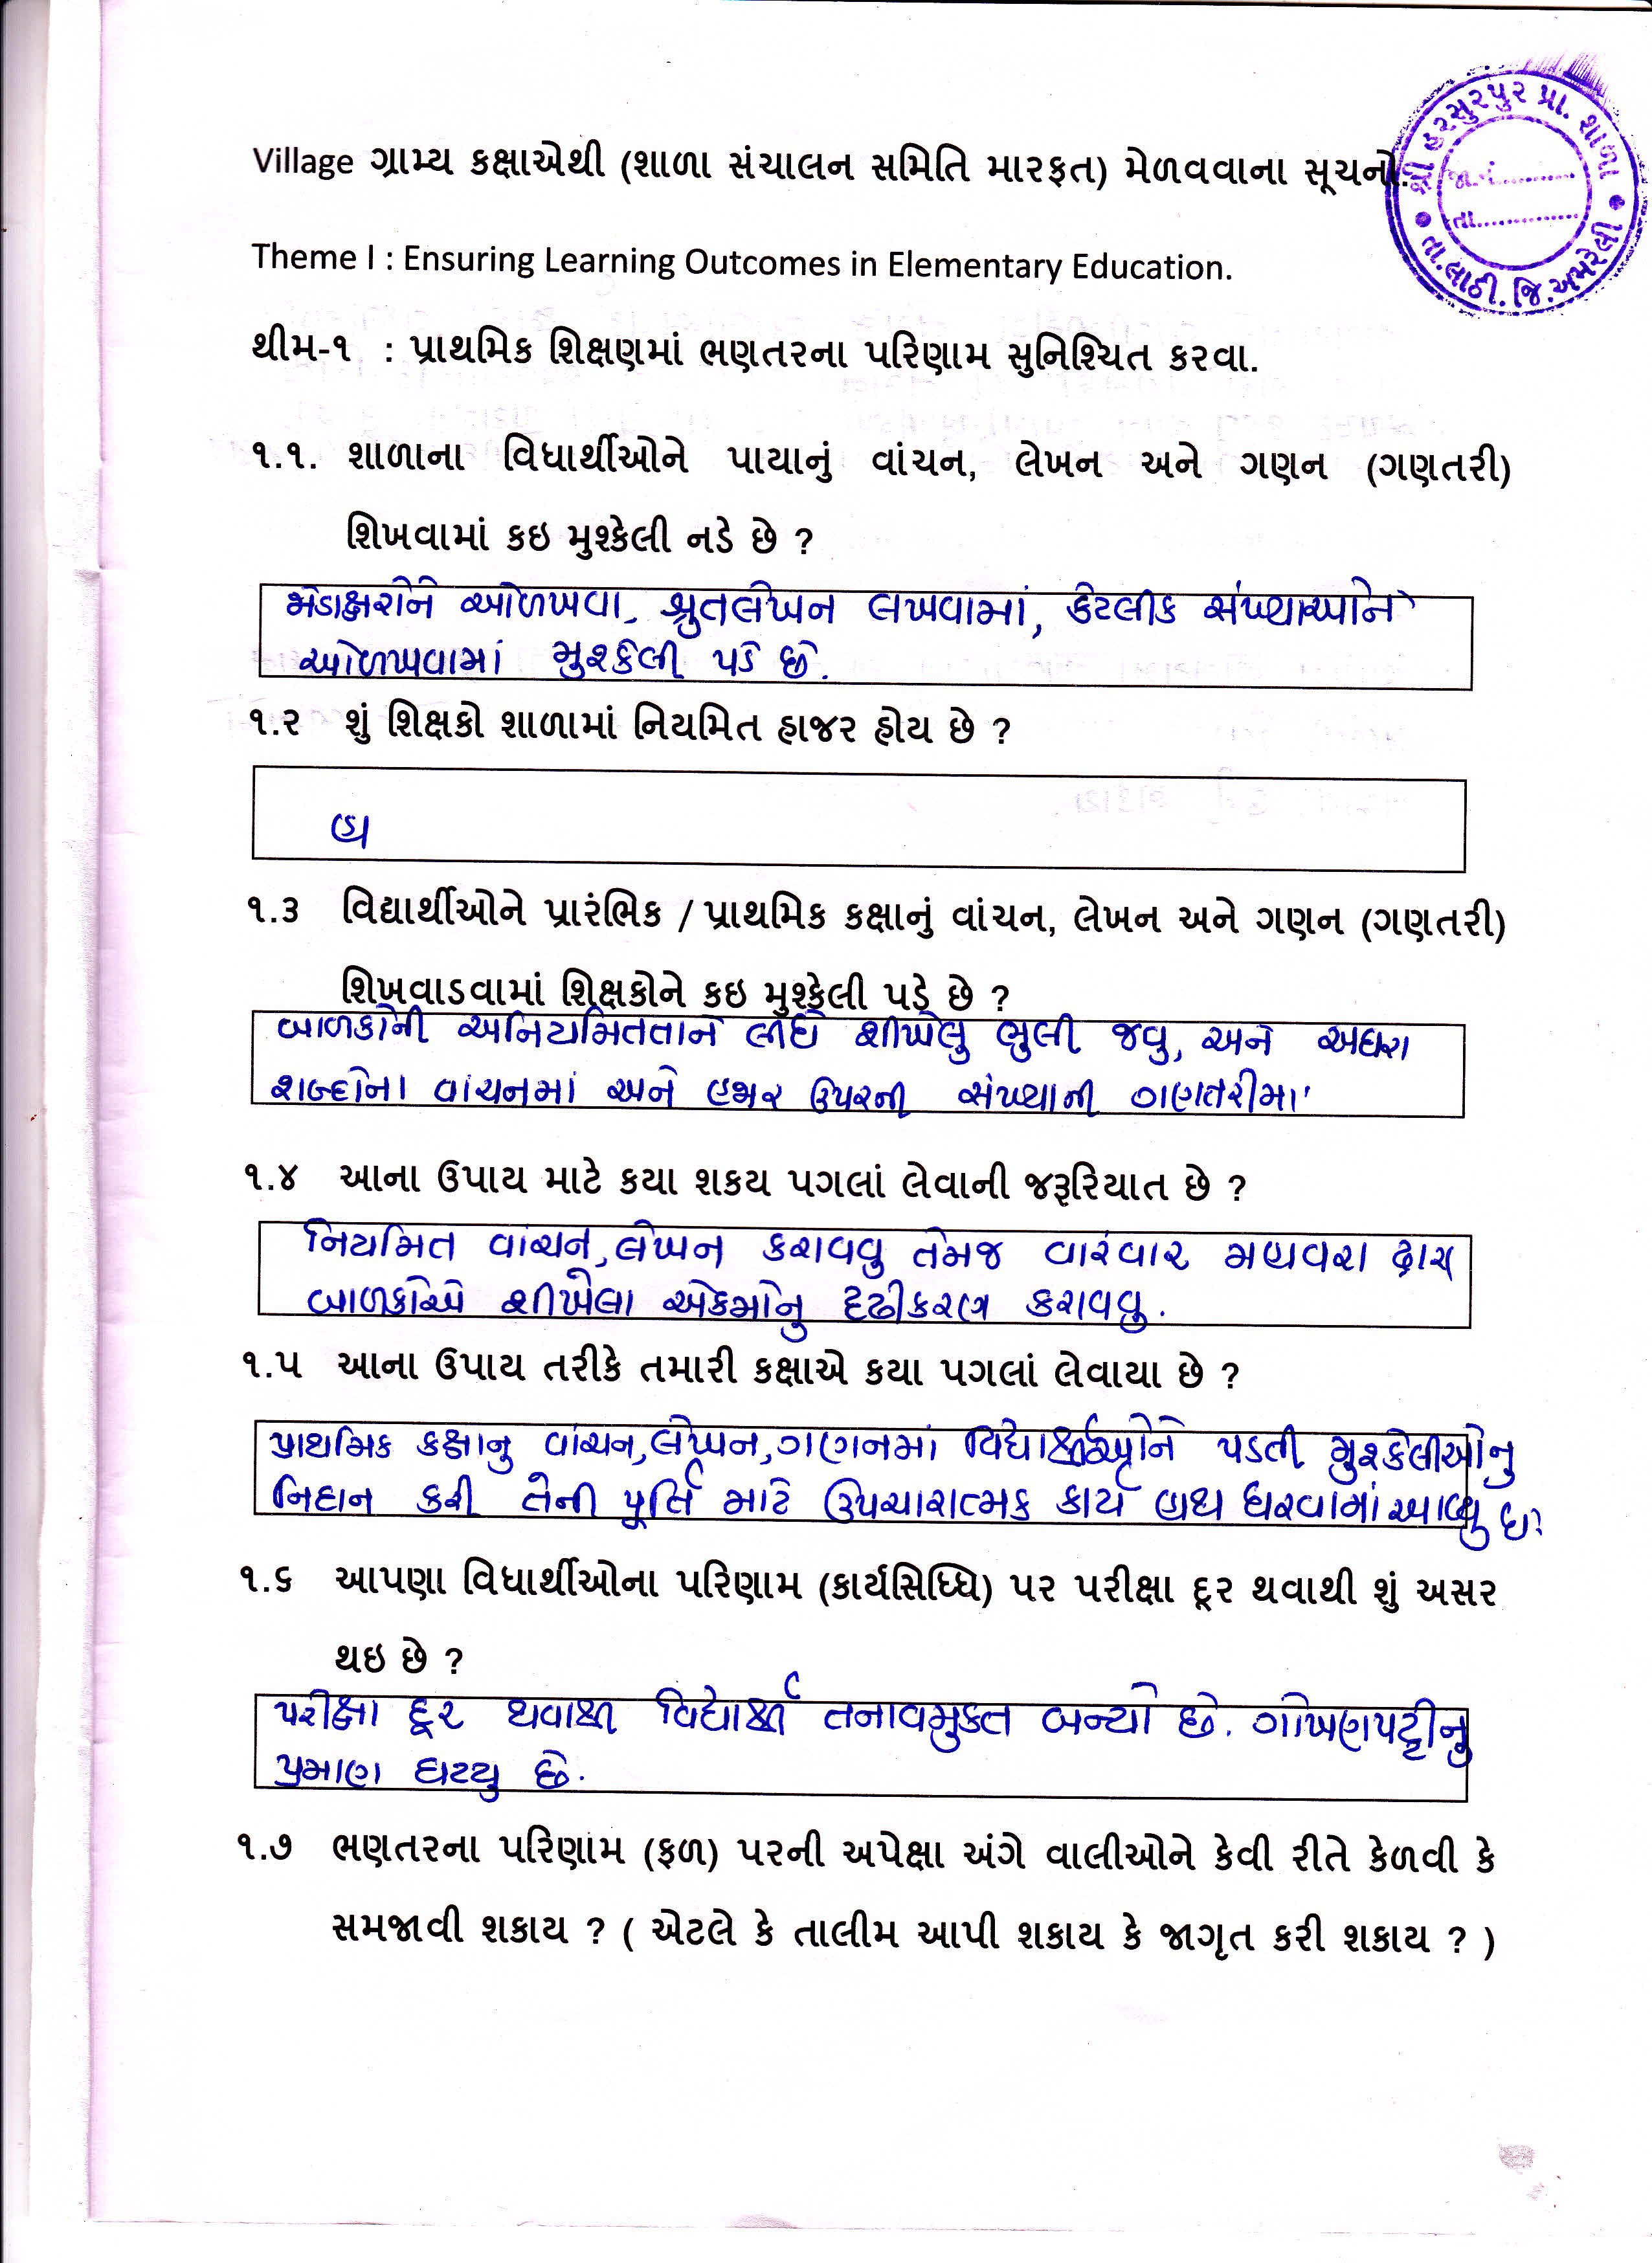 Village ગ્રામ્ય કક્ષાએથી (શાળા સંચાલન સમિતિ મારફત) મેળવવાના સૂચનો.
શ્રી હરસુરપુર પ્રા. શાળા
જા.નં............
તા...............
તા.લાઠી. જિ.અમરેલી
Theme I : Ensuring Learning Outcomes in Elementary Education.
થીમ-૧ : પ્રાથમિક શિક્ષણમાં ભણતરના પરિણામ સુનિશ્ચિત કરવા.
૧.૧. શાળાના વિધાર્થીઓને પાયાનું વાંચન, લેખન અને ગણન (ગણતરી)
શિખવામાં કઇ મુશ્કેલી નડે છે ?
જોડાક્ષરોને ઓળખવા, શ્રુતલેખન લખવામાં, કેટલીક સંખ્યાઓને
ઓળખવામાં મુશ્કેલી પડે છે.
૧.૨ શું શિક્ષકો શાળામાં નિયમિત હાજર હોય છે ?
હા
૧.૩ વિદ્યાર્થીઓને પ્રારંભિક / પ્રાથમિક કક્ષાનું વાંચન, લેખન અને ગણન (ગણતરી)
શિખવાડવામાં શિક્ષકોને કઇ મુશ્કેલી પડે છે ?
બાળકોની અનિયમિતતાને લીધે શીખેલુ ભુલી જવુ, અને અઘરા
શબ્દોના વાંચનમાં અને હજાર ઉપરની સંખ્યાની ગણતરીમાં
૧.૪ આના ઉપાય માટે કયા શકય પગલાં લેવાની જરૂરિયાત છે ?
નિયમિત વાંચન, લેખન કરાવવુ તેમજ વારંવાર મહાવરા દ્વારા
બાળકોએ શીખેલા એકમોનુ દૃઢીકરણ કરાવવુ.
૧.૫ આના ઉપાય તરીકે તમારી કક્ષાએ કયા પગલાં લેવાયા છે ?
પ્રાથમિક કક્ષાનુ વાંચન, લેખન, ગણનમાં વિદ્યાર્થીઓને પડતી મુશ્કેલીઓનુ
નિદાન કરી તેની પૂર્તિ માટે ઉપચારાત્મક કાર્ય હાથ ધરવામાં આવ્યુ છે.
૧.૬ આપણા વિધાર્થીઓના પરિણામ (કાર્યસિધ્ધિ) પર પરીક્ષા દૂર થવાથી શું અસર
થઇ છે ?
પરીક્ષા દૂર થવાથી વિદ્યાર્થી તનાવમુક્ત બન્યો છે. ગોખણપટ્ટીનુ
પ્રમાણ ઘટ્યુ છે.
૧.૭ ભણતરના પરિણામ (ફળ) પરની અપેક્ષા અંગે વાલીઓને કેવી રીતે કેળવી કે
સમજાવી શકાય ? ( એટલે કે તાલીમ આપી શકાય કે જાગૃત કરી શકાય ? )